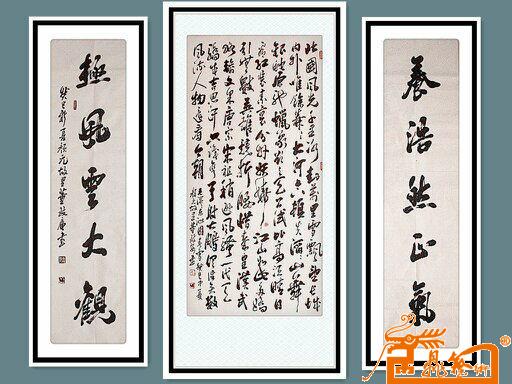 養浩然正氣
北國風光千里冰封萬里雪飄望長城
内外唯餘莽莽大河上下頓失滔滔山舞
銀蛇原馳蠟象欲與天公試比高須晴日
看紅裝素裹分外妖嬈江山如此多嬌
引無數英雄競折腰惜秦皇漢武
略輸文采唐宗宋祖稍遜風騷一代天
驕成吉思汗只識彎弓射大雕俱往矣數
風流人物還看今朝
極風雲大觀